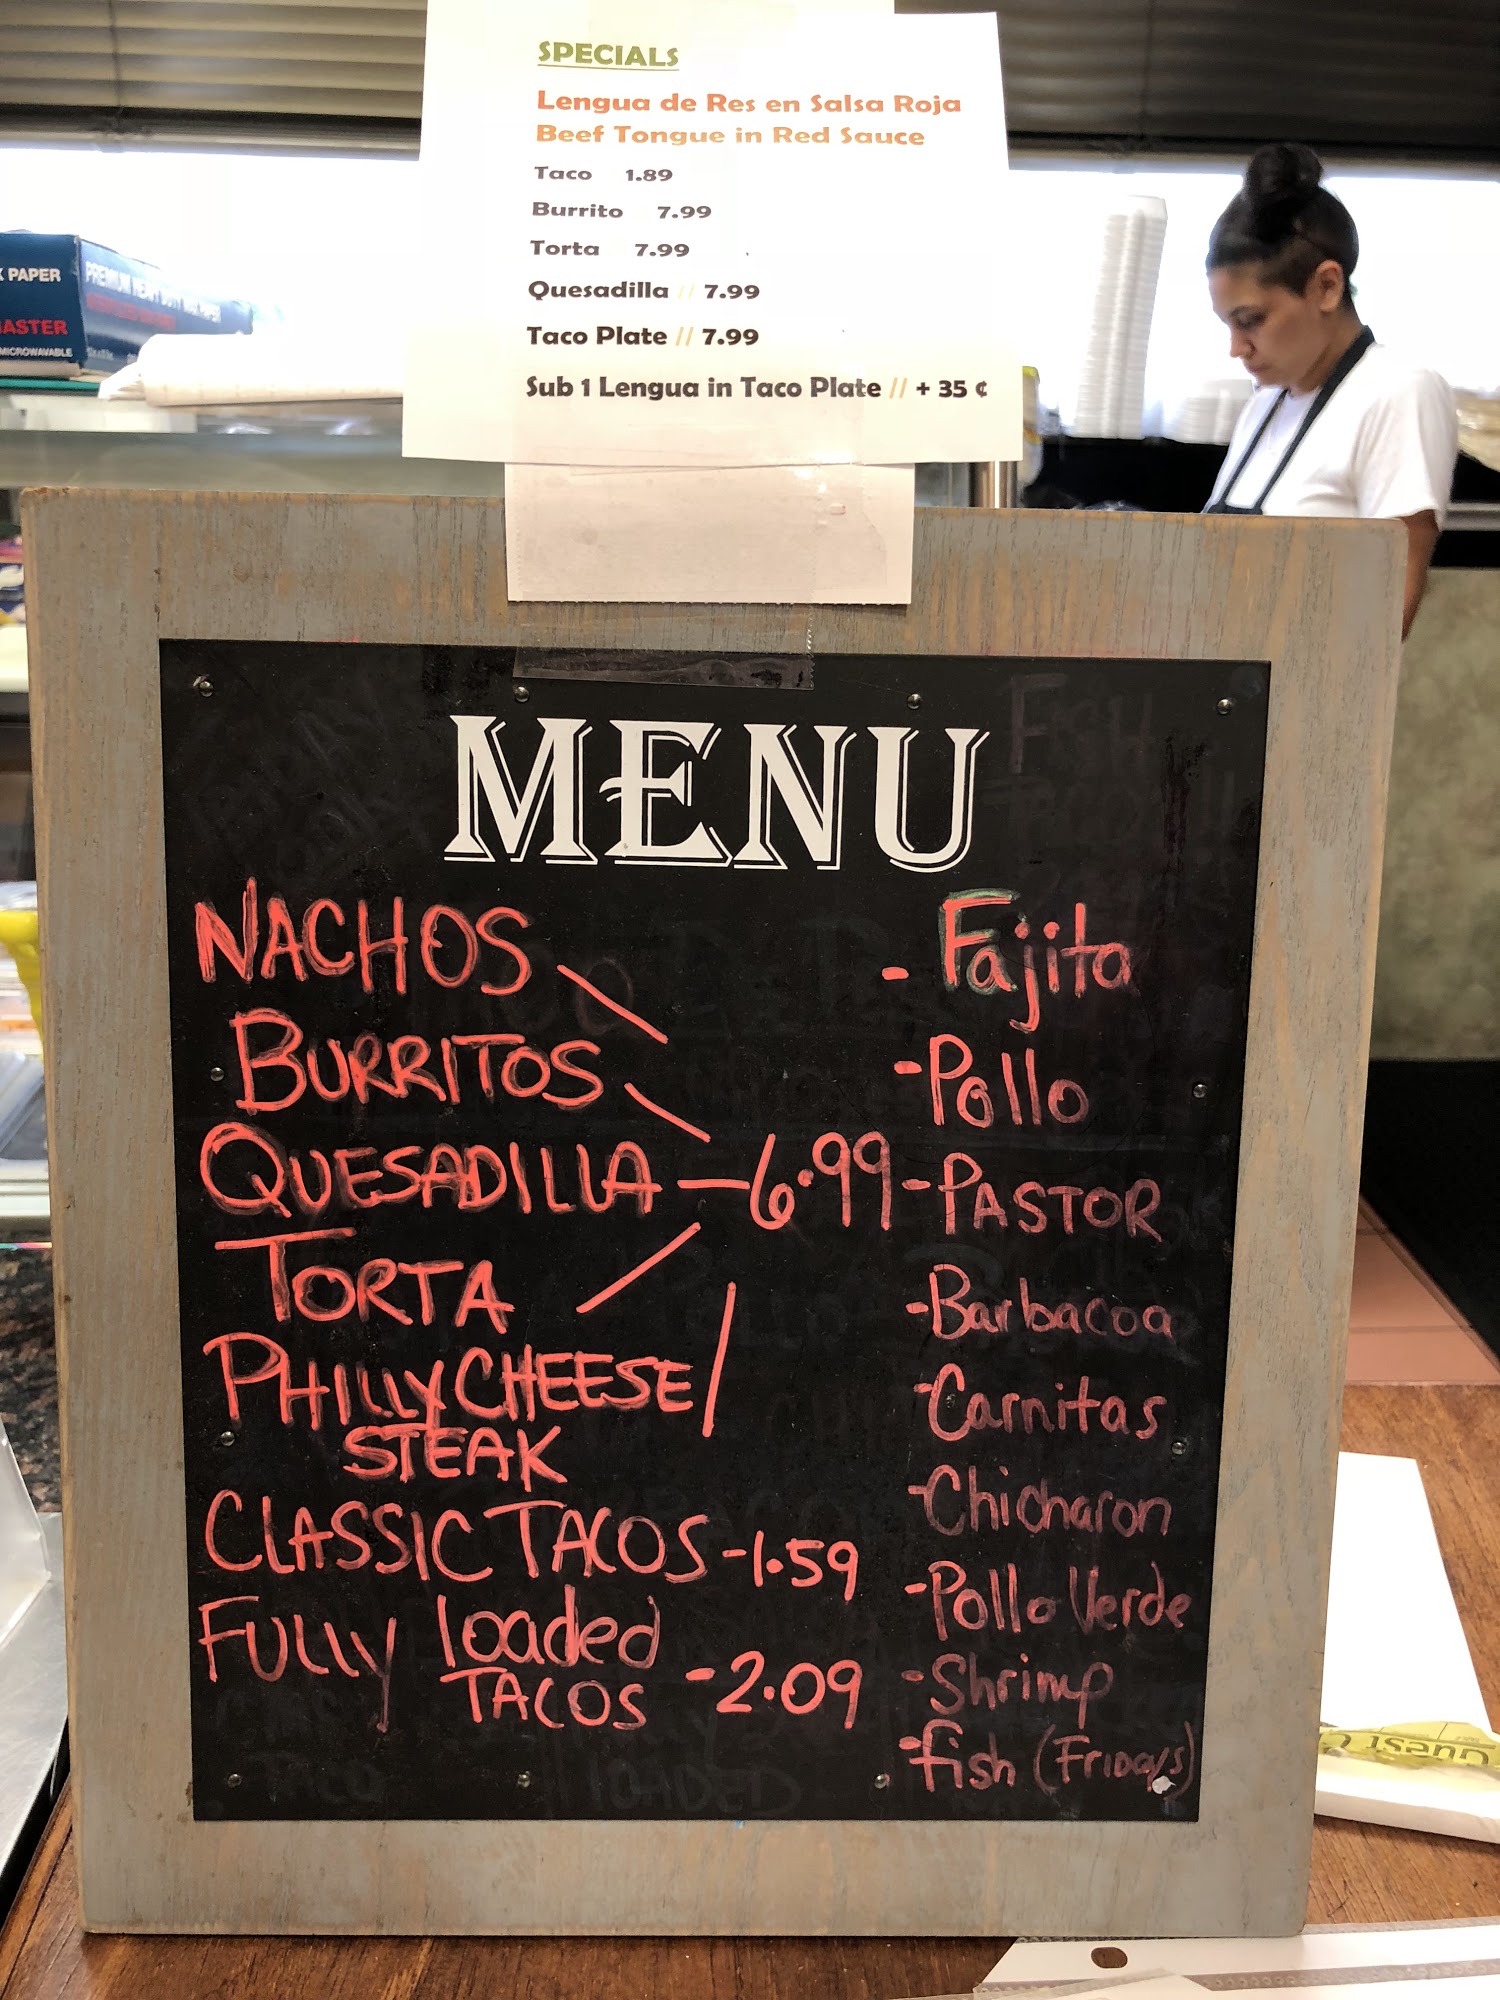 SPECIALS
Lengua de Res en Salsa Roja
Beef Tongue in Red Sauce
Taco 1.89
Burrito 7.99
Torta 7.99
Quesadilla // 7.99
Taco Plate // 7.99
Sub 1 Lengua in Taco Plate // + 35 ¢
PAPER
PREMIUM HEAVY DUTY
ASTER
MICROWAVABLE
MENU
NACHOS
BURRITOS
QUESADILLA — 6.99
TORTA
PHILLY CHEESE
STEAK
CLASSIC TACOS - 1.59
FULLY loaded
TACOS - 2.09
- Fajita
- Pollo
- PASTOR
- Barbacoa
- Carnitas
- Chicharon
- Pollo Verde
- Shrimp
- fish (FRIDAYS)
Guest